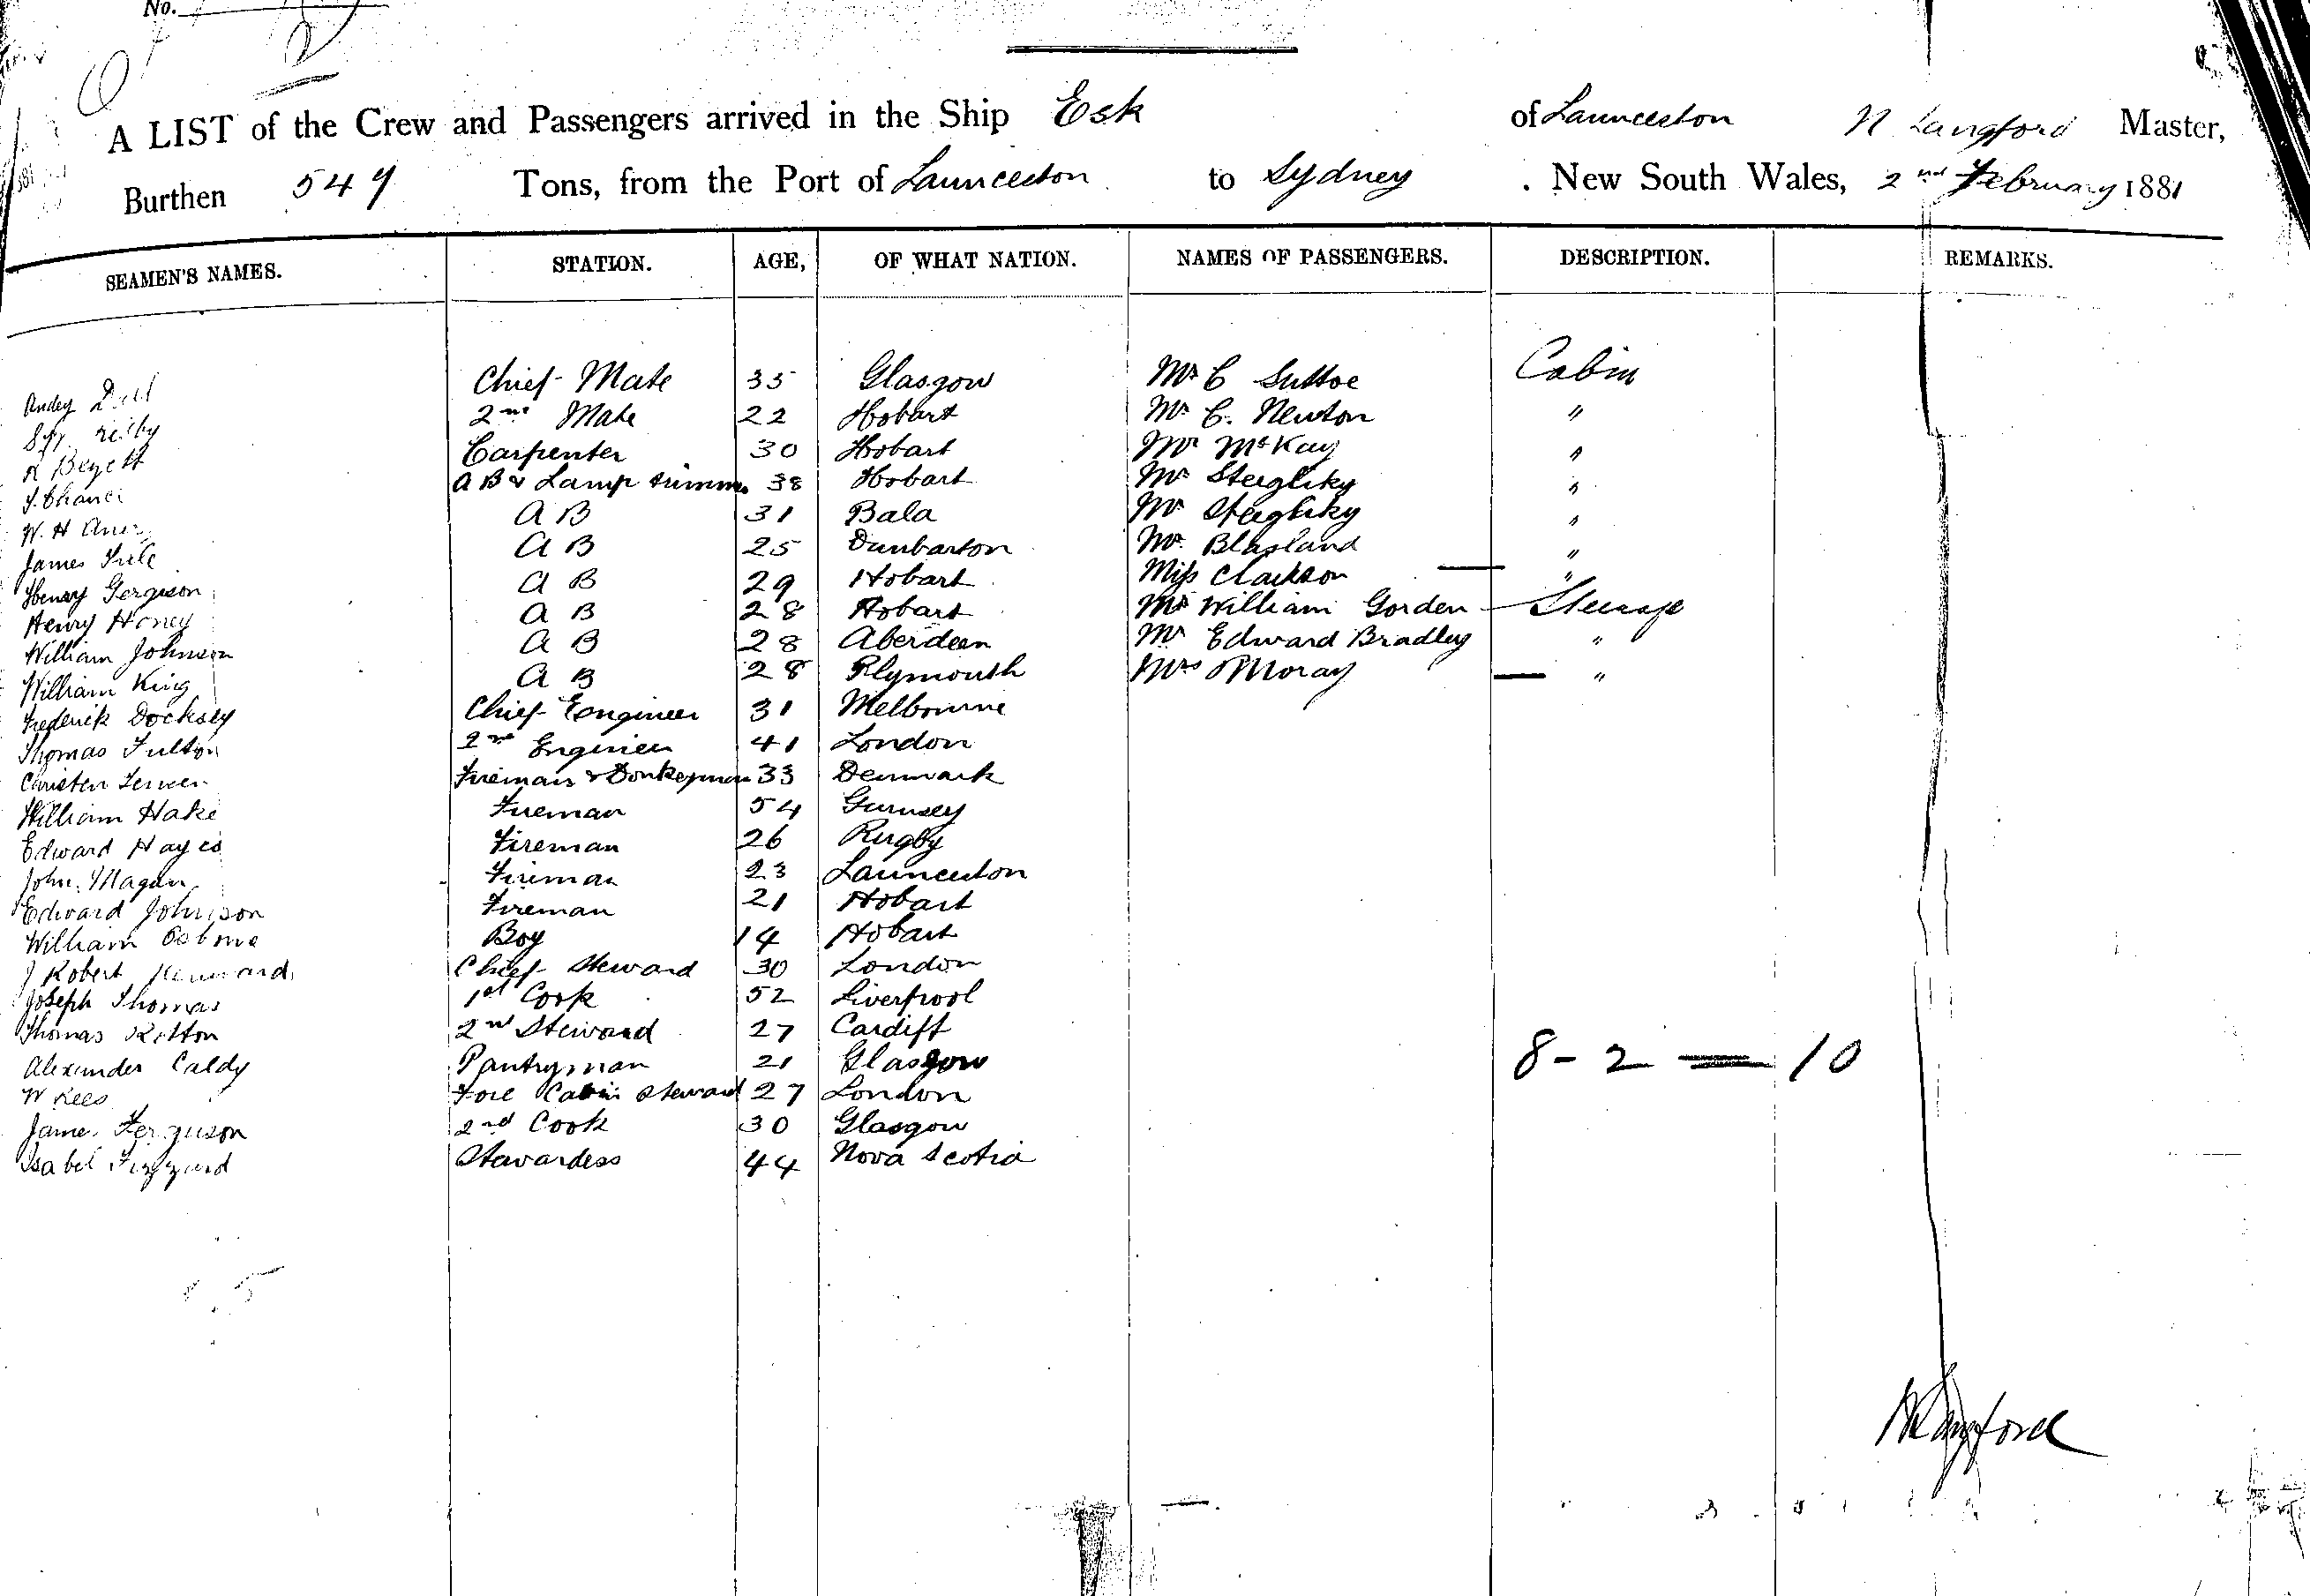 No.
A LIST of the Crew and Passengers arrived in the Ship Esk of Launceston N Langford Master,
Burthen 549 Tons, from the Port of Launceston to Sydney . New South Wales, 2nd February 1881
SEAMEN'S NAMES. STATION. AGE, OF WHAT NATION. NAMES OF PASSENGERS. DESCRIPTION. REMARKS.
Chief Mate 35 Glasgow Mr C Suttoe Cabin
2nd Mate 22 Hobart Mr C. Newton "
Carpenter 30 Hobart Mr McKay "
A B & Lamp trimmer 38 Hobart Mr "
W. H A B 31 Bala Mr "
James A B 25 Dunbarton Mr. Blasland "
Henry Ferguson A B 29 Hobart Miss Clarkson — "
Henry Honey A B 28 Hobart Mr William Gorden — Steerage
William Johnson A B 28 Aberdeen Mr Edward Bradley "
William King A B 28 Plymouth Mrs Moray — "
Frederick Docksey Chief Engineer 31 Melbourne
Thomas Fulton 2nd Engineer 41 London
Christen Fireman & Donkeyman 33 Denmark
William Hake Fireman 54 Gurnsey
Edward Hayes Fireman 26 Rugby
John Magan Fireman 23 Launceston
Edward Johnson Fireman 21 Hobart
William Osborne Boy 14 Hobart
J Robert Kennard Chief Steward 30 London
Joseph Thomas 1st Cook 52 Liverpool
Thomas Rotton 2nd Steward 27 Cardiff
Alexander Caldy Pantryman 21 Glasgow 8 - 2 = 10
W Rees Fore Cabin Steward 27 London
James Ferguson 2nd Cook 30 Glasgow
Isabel Stewardess 44 Nova Scotia
N Langford